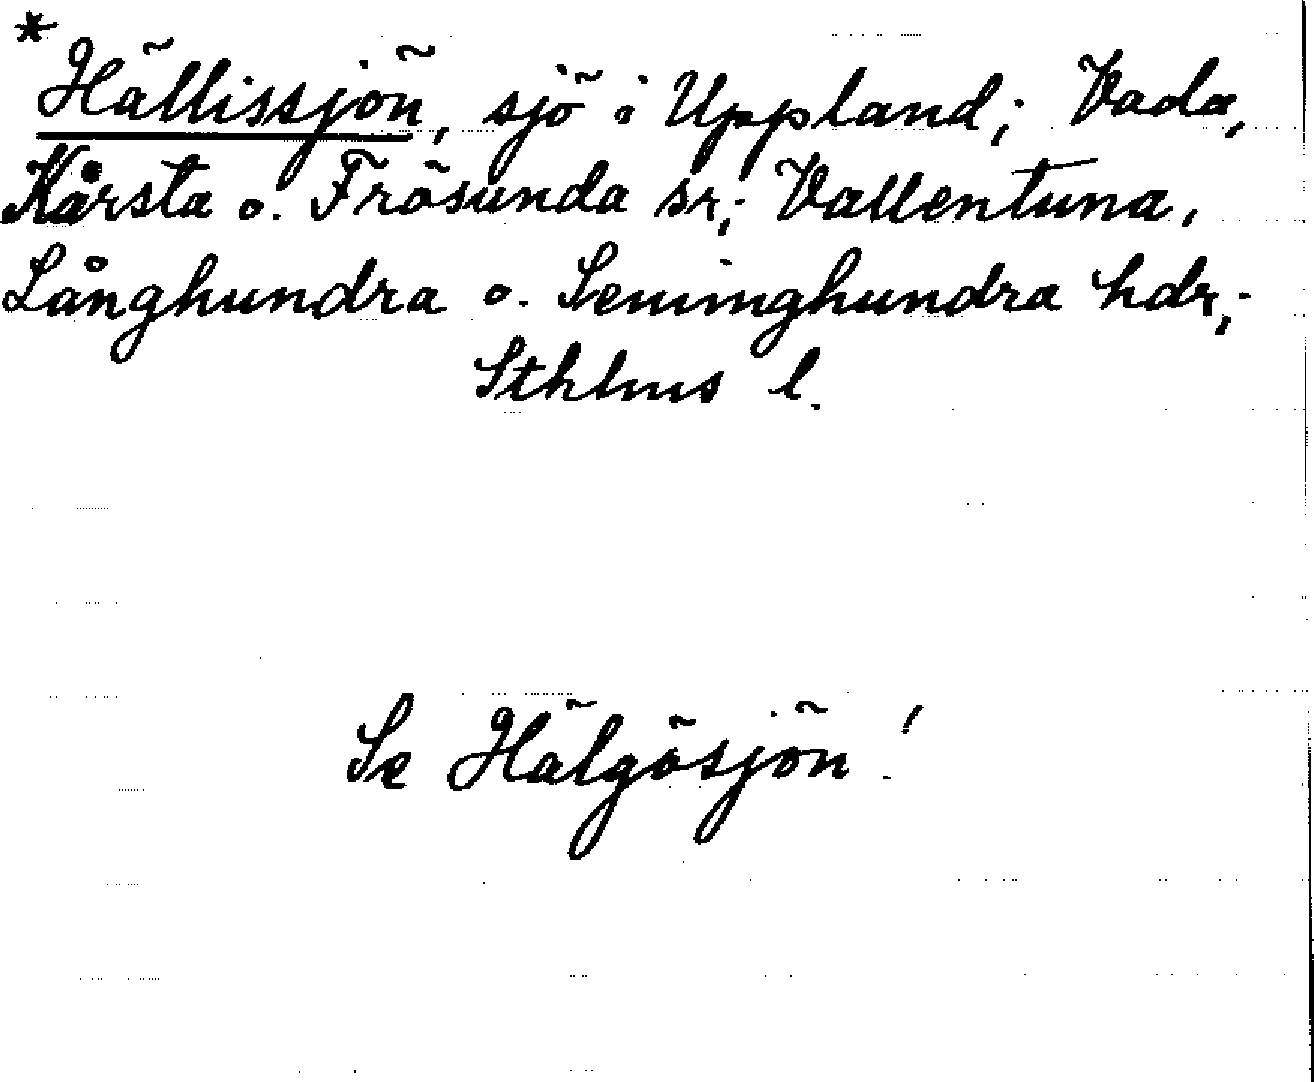 * Hällissjön, sjö i Uppland; Vada,
Kårsta o. Frösunda sr; Vallentuna,
Långhundra o. Seminghundra hdr;
Sthlms l.
Se Hälgösjön!